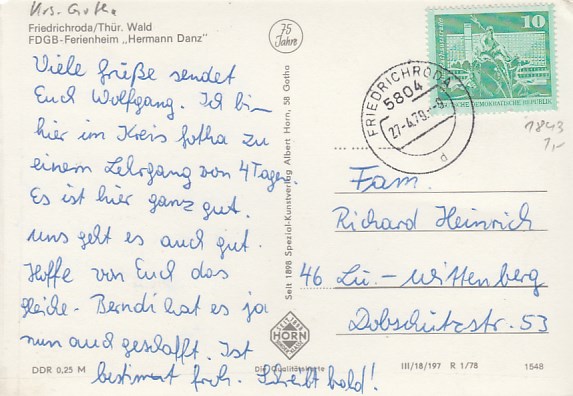 Krs. Gotha
Friedrichroda/Thür. Wald
FDGB-Ferienheim „Hermann Danz"
75
Jahre
10
DEUTSCHE DEMOKRATISCHE REPUBLIK
FRIEDRICHRODA
5804
27-4.79.-9
d
1843
1,-
Viele Grüße sendet
Euch Wolfgang. Ich bin
hier im Kreis Gotha zu
einem Lehrgang von 4 Tagen.
Es ist hier ganz gut.
uns geht es auch gut.
Hoffe von Euch das
gleiche. Berndi hat es ja
nun auch geschafft. Ist
bestimmt froh. Schreibt bald!
Seit 1898 Spezial-Kunstverlag Albert Horn, 58 Gotha
HORN
Die Qualitätskarte
Fam.
Richard Heinrich
46 Lu.-Wittenberg
Dobschützstr. 53
DDR 0,25 M
III/18/197 R 1/78 1548